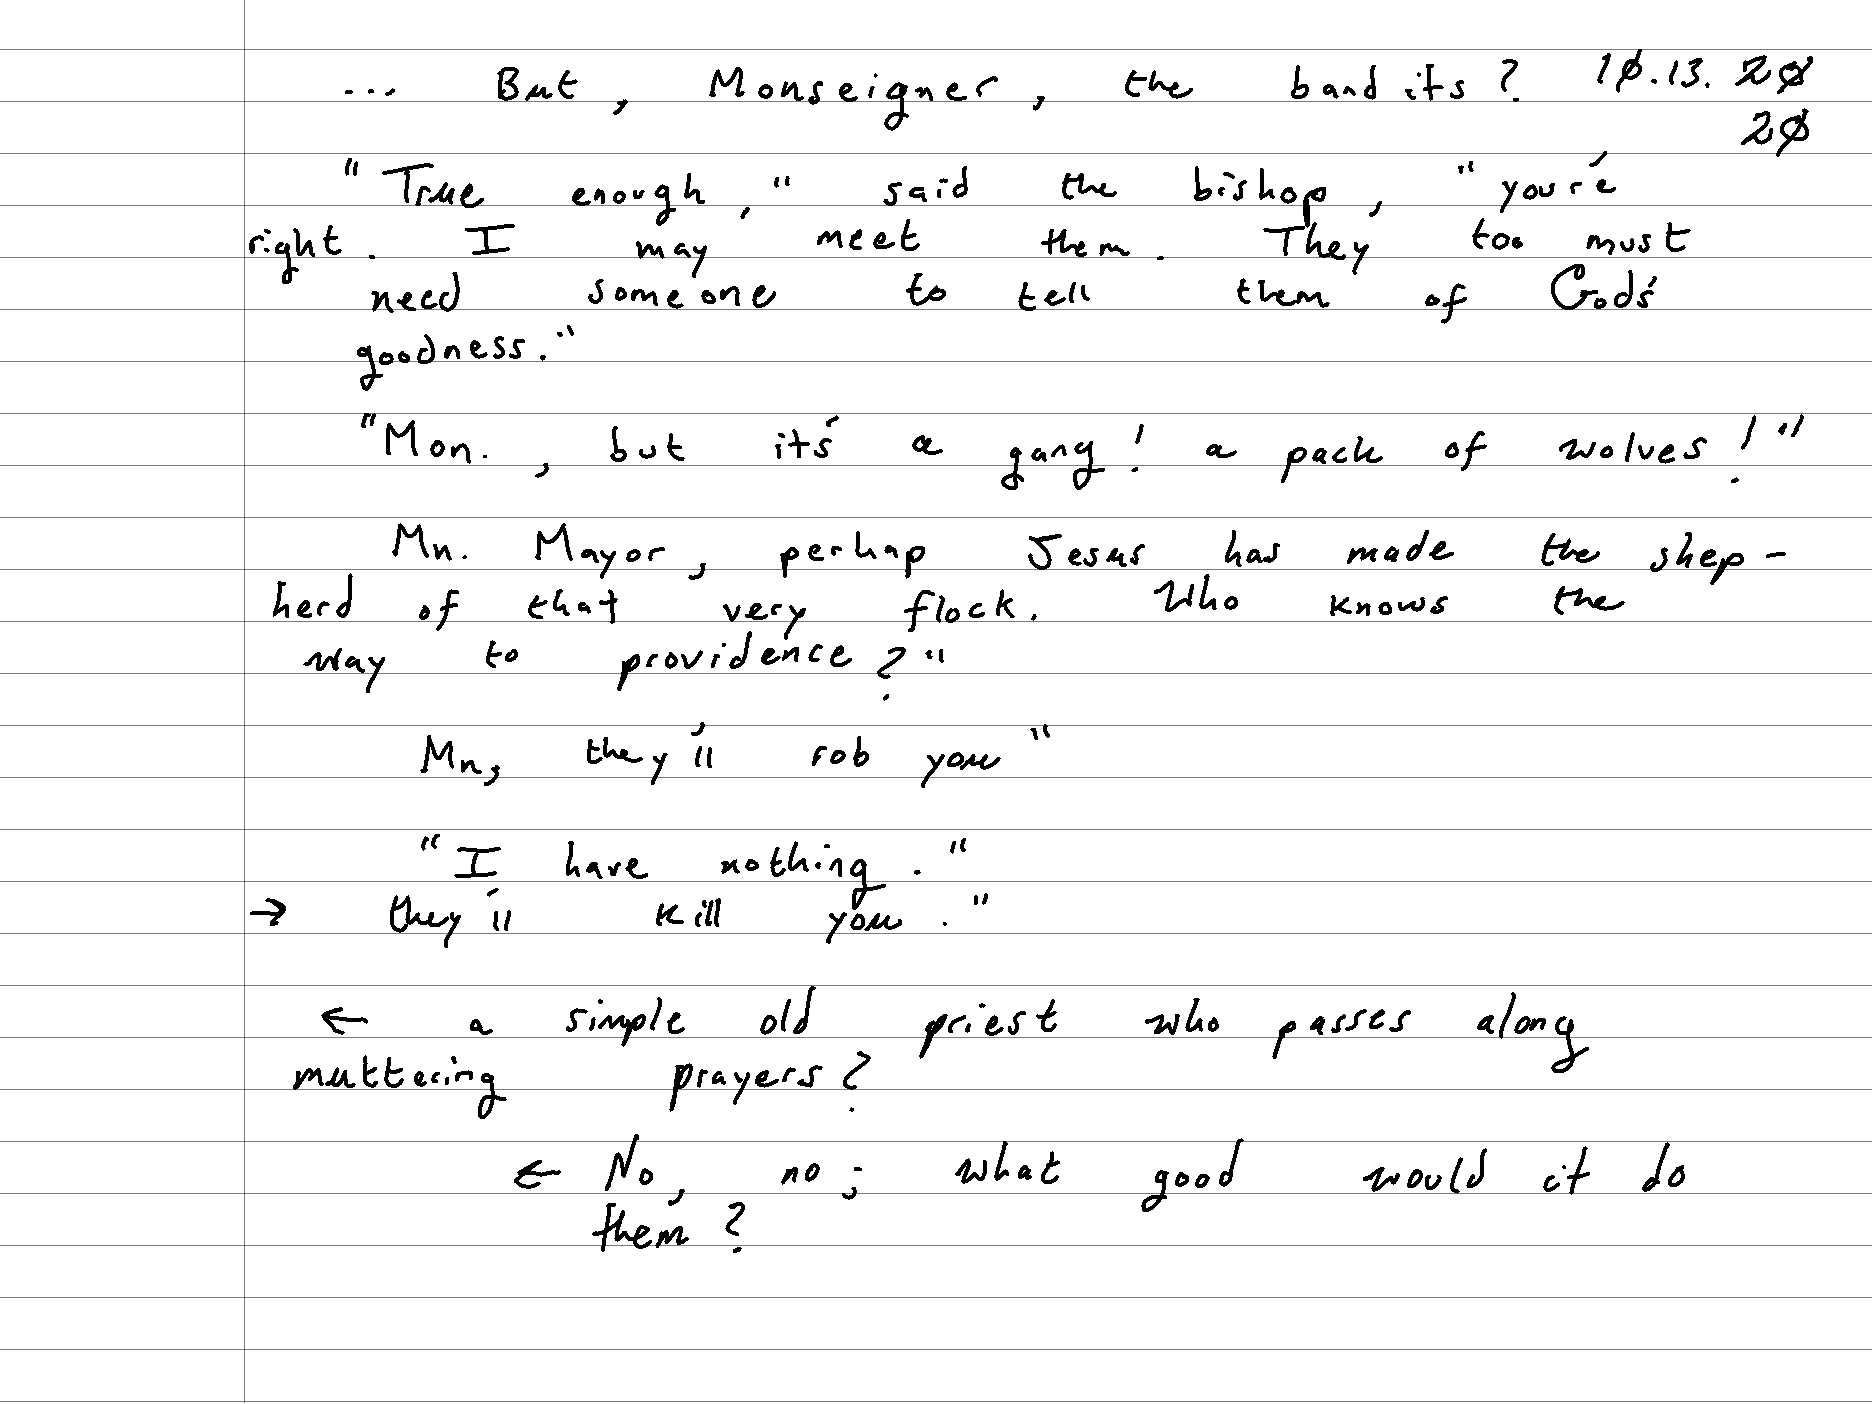 ... But, Monseigner, the bandits? 10.13.20
20
"True enough," said the bishop, "you're
right. I may meet them. They too must
need someone to tell them of God's
goodness."
"Mon., but it's a gang! a pack of wolves!"
Mn. Mayor, perhap Jesus has made the shep-
herd of that very flock. Who knows the
way to providence?"
Mn, they'll rob you"
"I have nothing."
→ they'll kill you."
← a simple old priest who passes along
muttering prayers?
← No, no; what good would it do
them?